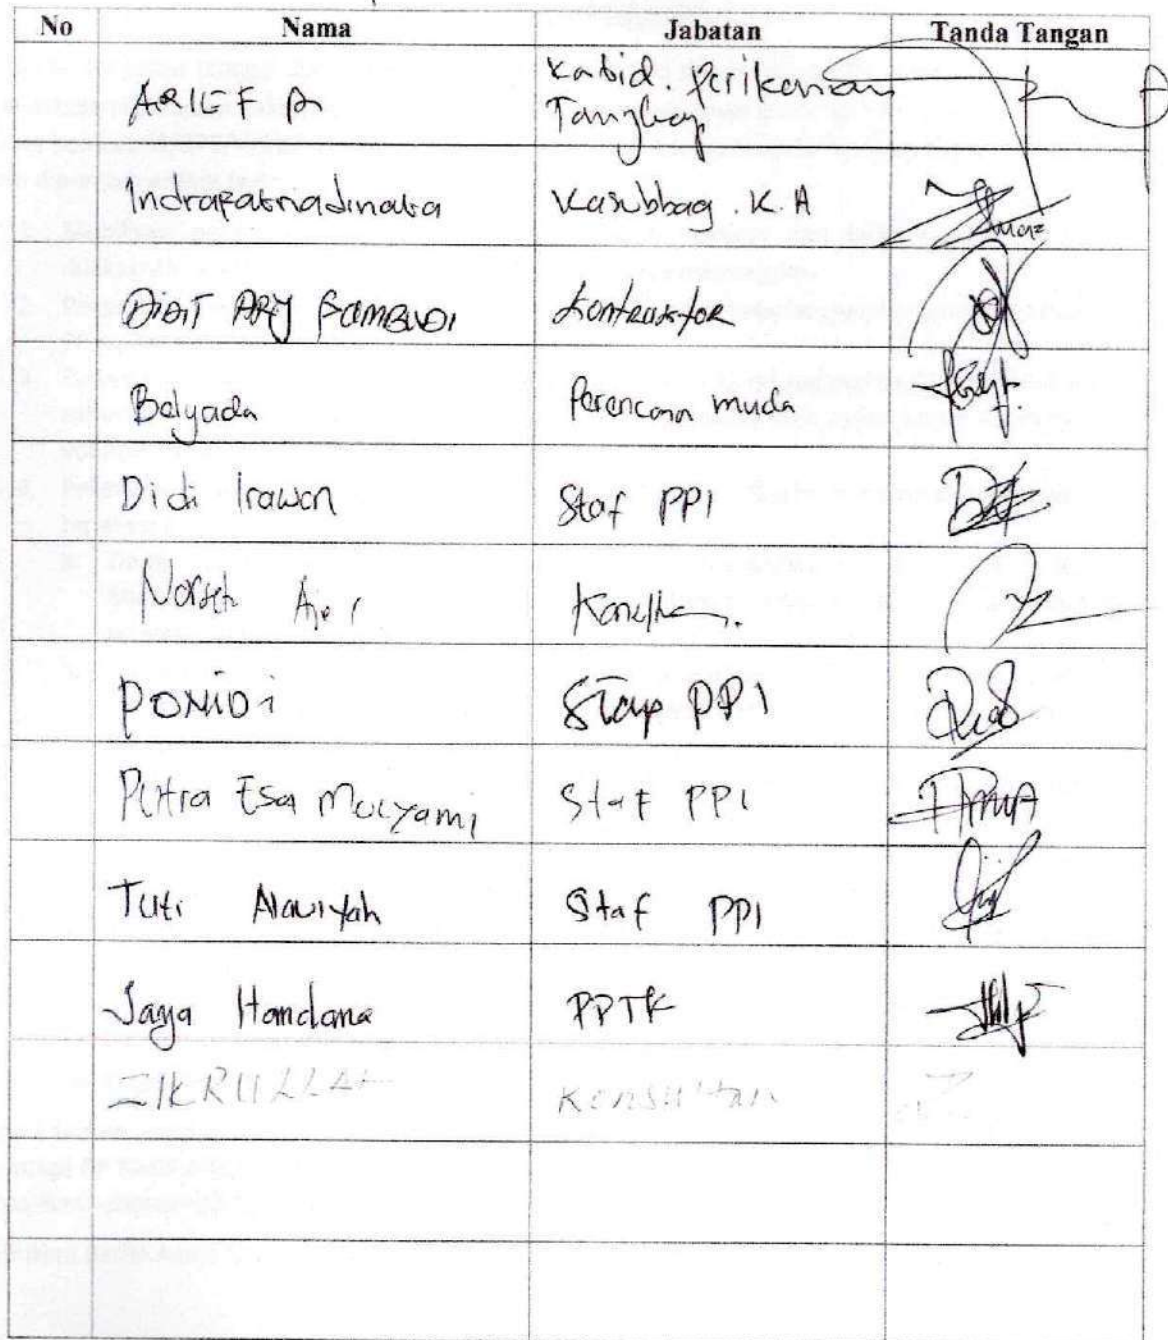 No Nama Jabatan Tanda Tangan
ARIEF A Kabid. Perikanan
Tangkap
Indraratnadinata Kasubbag. K.A
DIGIT ARY PAMBUDI Kontraktor
Belyada Perencana muda
Didi Irawan Staf PPI
PONIDI Stap PPI
Putra Esa Mulyami Staf PPI
Tuti Alawiyah Staf PPI
Jaya Handana PPTK
ZIKRULLAH Konsultan